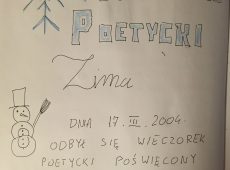 POETYCKI
Zima
DNIA 17. III. 2004.
ODBYŁ SIĘ WIECZOREK
POETYCKI POŚWIĘCONY